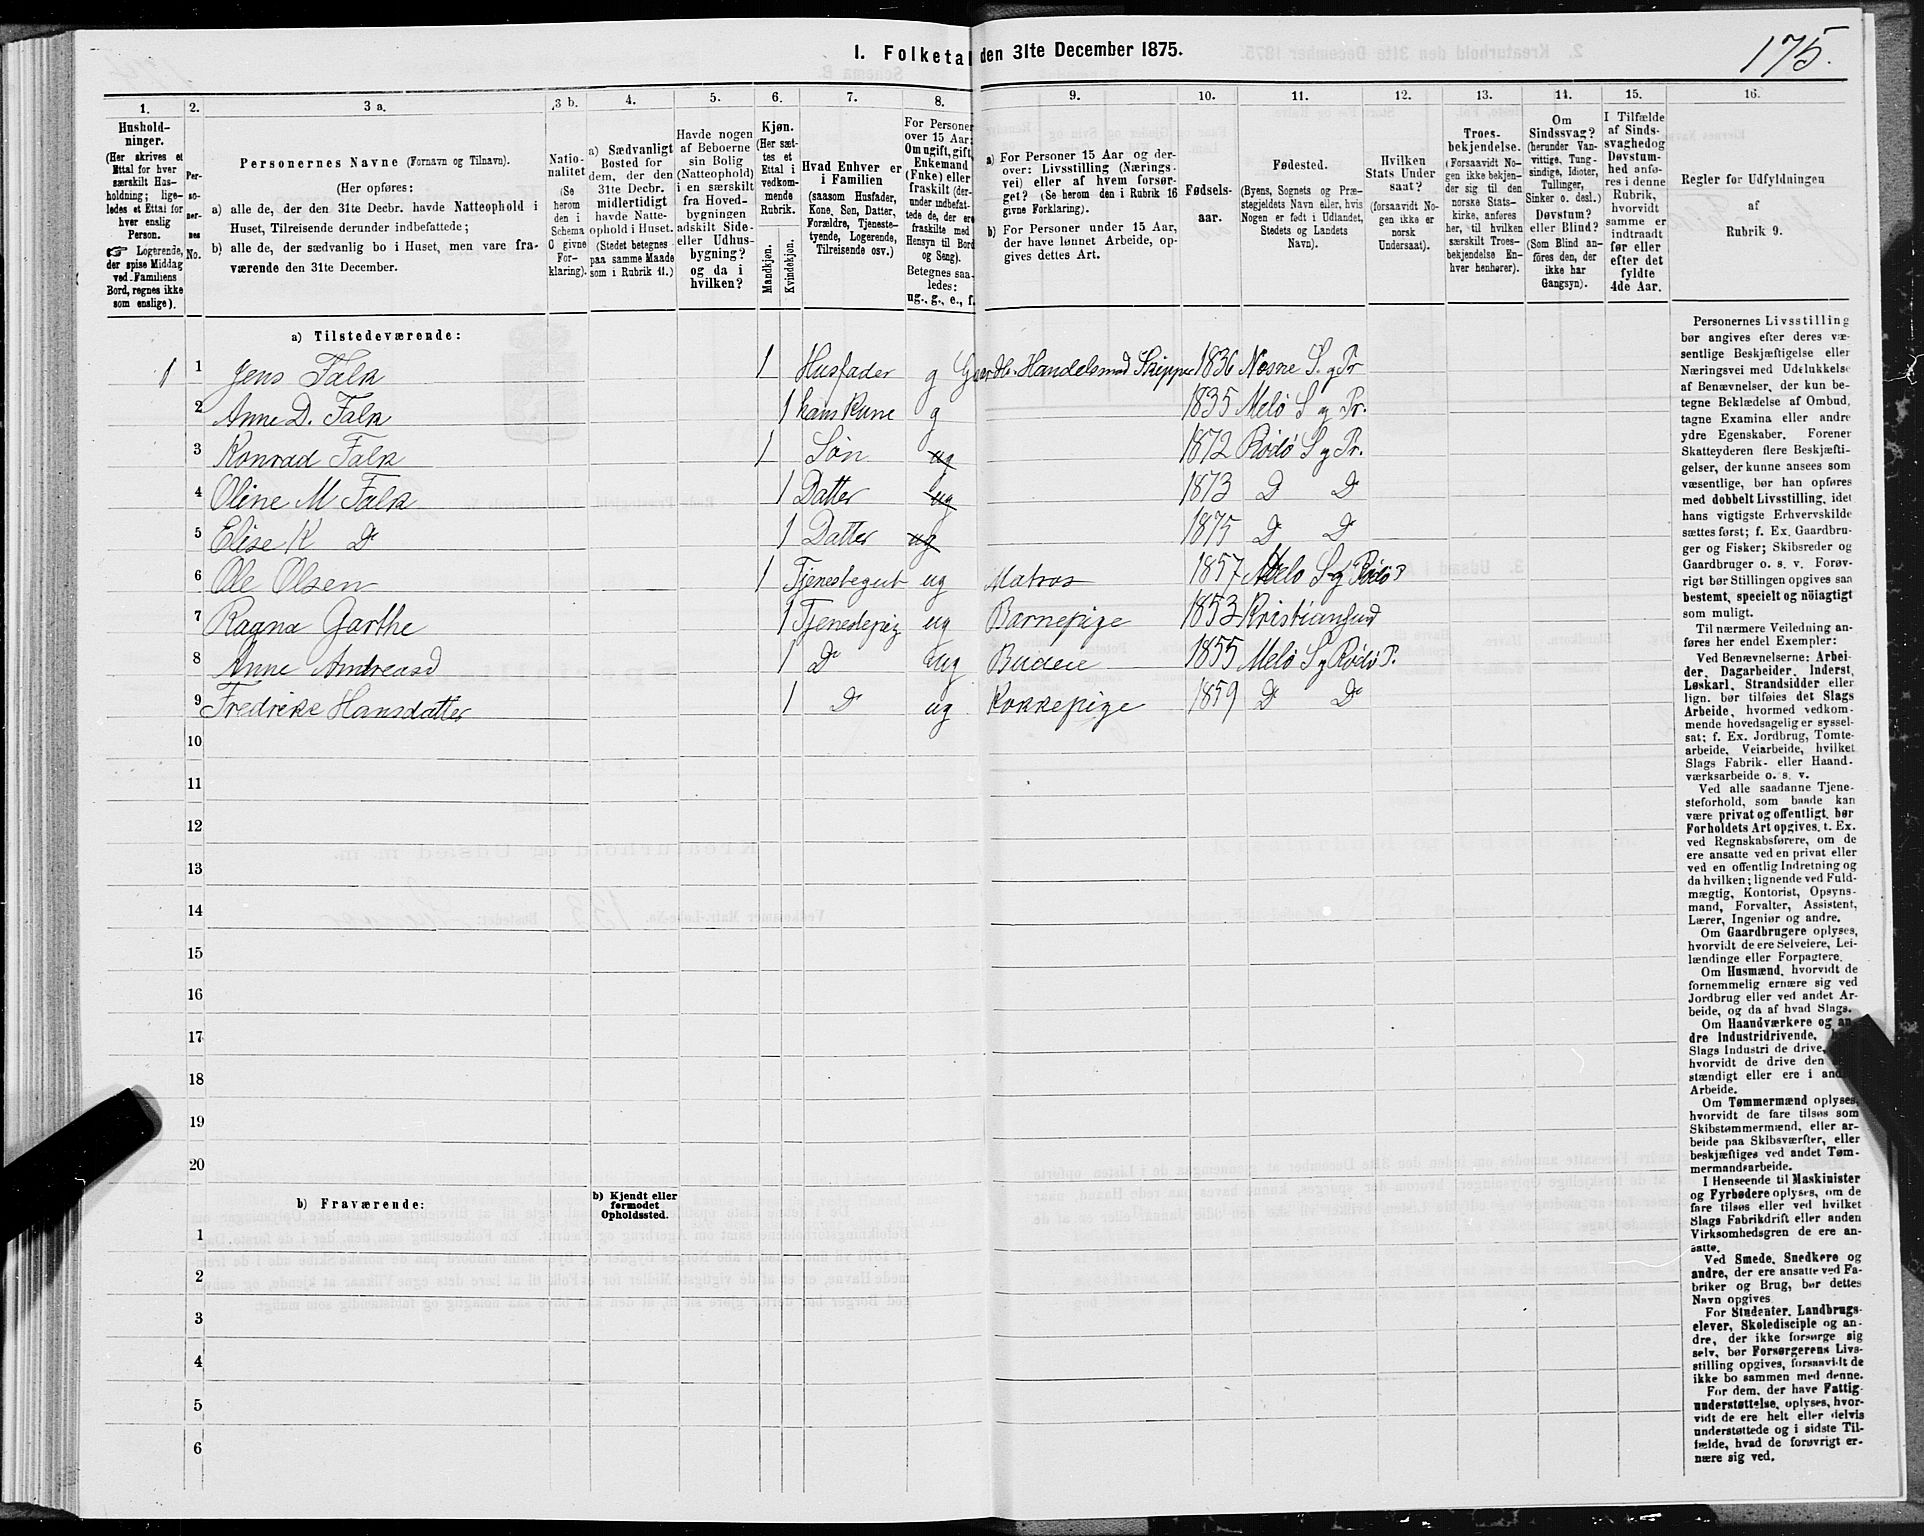 I. Folketal den 31te December 1875.
175.
1. 2. 3 a. 3 b. 4. 5. 6. 7. 8. 9. 10. 11. 12. 13. 14. 15. 16.
Husholdninger.
(Her skrives et
Ettal for hver
særskilt Husholdning;
ligeledes et Ettal for
hver enslig
Person.
☞ Logerende,
der spise Middag
ved Familiens
Bord, regnes ikke
som enslige).
Personernes No.
Personernes Navne (Fornavn og Tilnavn).
(Her opføres:
a) alle de, der den 31te Decbr. havde Natteophold i
Huset, Tilreisende derunder indbefattede;
b) alle de, der sædvanlig bo i Huset, men vare fraværende
den 31te December.
Nationalitet
(Se
herom
den i
Schema
C givne
Forklaring).
a) Sædvanligt
Bosted for
dem, der den
31te Decbr.
midlertidigt
havde Natteophold
i Huset.
(Stedet betegnes
paa samme Maade
som i Rubrik 11.)
Havde nogen
af Beboerne
sin Bolig
(Natteophold)
i en særskilt
fra Hovedbygningen
adskilt Side-
eller Udhusbygning?
og da i
hvilken?
Kjøn.
(Her sættes
et
Ettal i
vedkommende
Rubrik.
Mandkjøn.
Kvindekjøn.
Hvad Enhver er
i Familien
(saasom Husfader,
Kone, Søn, Datter,
Forældre, Tjenestetyende,
Logerende,
Tilreisende osv.)
For Personer
over 15 Aar:
Om ugift, gift,
Enkemand
(Enke) eller
fraskilt (derunder
indbefattede
de, der ere
fraskilte med
Hensyn til Bord
og Seng).
Betegnes saaledes:
ug., g., e., f.
a) For Personer 15 Aar og derover:
Livsstilling (Næringsvei)
eller af hvem forsørget?
(Se herom den i Rubrik 16
givne Forklaring).
b) For Personer under 15 Aar,
der have lønnet Arbeide, opgives
dettes Art.
Fødselsaar.
Fødested.
(Byens, Sognets og Præstegjeldets
Navn eller, hvis
Nogen er født i Udlandet,
Stedets og Landets
Navn).
Hvilken
Stats Undersaat?
(forsaavidt Nogen
ikke er
norsk
Undersaat).
Troesbekjendelse.
(Forsaavidt Nogen
ikke bekjender
sig til den
norske Statskirke,
anføres
her, til hvilken
særskilt Troesbekjendelse
Enhver
henhører).
Om
Sindssvag?
(herunder Vanvittige,
Tungsindige,
Idioter,
Tullinger,
Sinker o. desl.)
Døvstum?
eller Blind?
(Som Blind anføres
den, der
ikke har
Gangsyn).
I Tilfælde
af Sindssvaghed
og
Døvstumhed
anføres
i denne
Rubrik,
hvorvidt
samme er
indtraadt
før eller
efter det
fyldte
4de Aar.
Regler for Udfyldningen
af
Rubrik 9.
a) Tilstedeværende:
1 1 Jens Falk 1 Husfader g Gaardb. Handelsmd Skipper 1836 Nesne S. g Pr
2 Anne D. Falk 1 hans Kone g 1835 Melö S g Pr.
3 Konrad Falk 1 Søn ug 1872 Rødø S g Pr.
4 Oline M Falk 1 Datter ug 1873 D D
5 Elise K Do 1 Datter ug 1875 D Do
6 Ole Olsen 1 Tjenestegut ug Matros 1857 Melo S g Rödö P
7 Ragna Garthe 1 Tjenestepig ug Barnepige 1853 Kristiansund
8 Anne Andreasd 1 Do ug Budeie 1855 Melö S g Rödö P.
9 Fredrike Hansdatter 1 Do ug Kokkepige 1859 Do Do
10
11
12
13
14
15
16
17
18
19
20
b) Fraværende:
b) Kjendt eller
formodet
Opholdssted.
1
2
3
4
5
6
Personernes Livsstilling
bør angives efter deres væsentlige
Beskjæftigelse eller
Næringsvei med Udelukkelse
af Benævnelser, der kun betegne
Beklædelse af Ombud,
tagne Examina eller andre
ydre Egenskaber. Forener
Skatteyderen flere Beskjæftigelser,
der kunne ansees som
væsentlige, bør han opføres
med dobbelt Livsstilling, idet
hans vigtigste Erhvervskilde
sættes først; f. Ex. Gaardbruger
og Fisker; Skibsreder og
Gaardbruger o. s. v. Forøvrigt
bør Stillingen opgives saa
bestemt, specielt og nöiagtigt
som muligt.
Til nærmere Veiledning anføres
her endel Exempler:
Ved Benævnelserne: Arbeider,
Dagarbeider, Inderst,
Løskarl, Strandsidder eller
lign. bør tilføies det Slags
Arbeide, hvormed vedkommende
hovedsagelig er sysselsat;
f. Ex. Jordbrug, Tomtearbeide,
Veiarbeide, hvilket
Slags Fabrik- eller Haandværksarbeide
o. s. v.
Ved alle saadanne Tjenesteforhold,
som baade kan
være privat og offentligt, bør
Forholdets Art opgives, t. Ex.
ved Regnskabsførere, om de
ere ansatte ved en privat eller
ved en offentlig Indretning og
da hvilken; lignende ved Fuldmægtig,
Kontorist, Opsynsmand,
Forvalter, Assistent,
Lærer, Ingeniør og andre.
Om Gaardbrugere oplyses,
hvorvidt de ere Selveiere, Leilændinge
eller Forpagtere.
Om Husmænd, hvorvidt de
fornemmelig ernære sig ved
Jordbrug eller ved andet Arbeide,
og da af hvad Slags.
Om Haandværkere og andre
Industridrivende,
Slags Industri de drive,
hvorvidt de drive den
stændigt eller ere i andres
Arbeide.
Om Tømmermænd oplyses,
hvorvidt de fare tilsøs som
Skibstømmermænd, eller arbeide
paa Skibsværfter, eller
beskjæftiges ved andet Tømmermandsarbeide.
I Henseende til Maskinister
og Fyrbødere oplyses, om de
fare tilsøs eller ved hvilket
Slags Fabrikdrift eller anden
Virksomhedsgren de ere ansatte.
Ved Smede, Snedkere og
andre, der ere ansatte ved Fabriker
og Brug, bør dettes
Navn opgives
For Studenter, Landbrugselever,
Skoledisciple og andre,
der ikke forsørge sig
selv, bør Forsørgerens Livsstilling
opgives, forsaavidt de
ikke bo sammen med denne.
For dem, der have Fattigunderstøttelse,
oplyses, hvorvidt
de ere helt eller delvis
understøttede og i sidste Tilfælde,
hvad de forøvrigt ernære
sig ved.